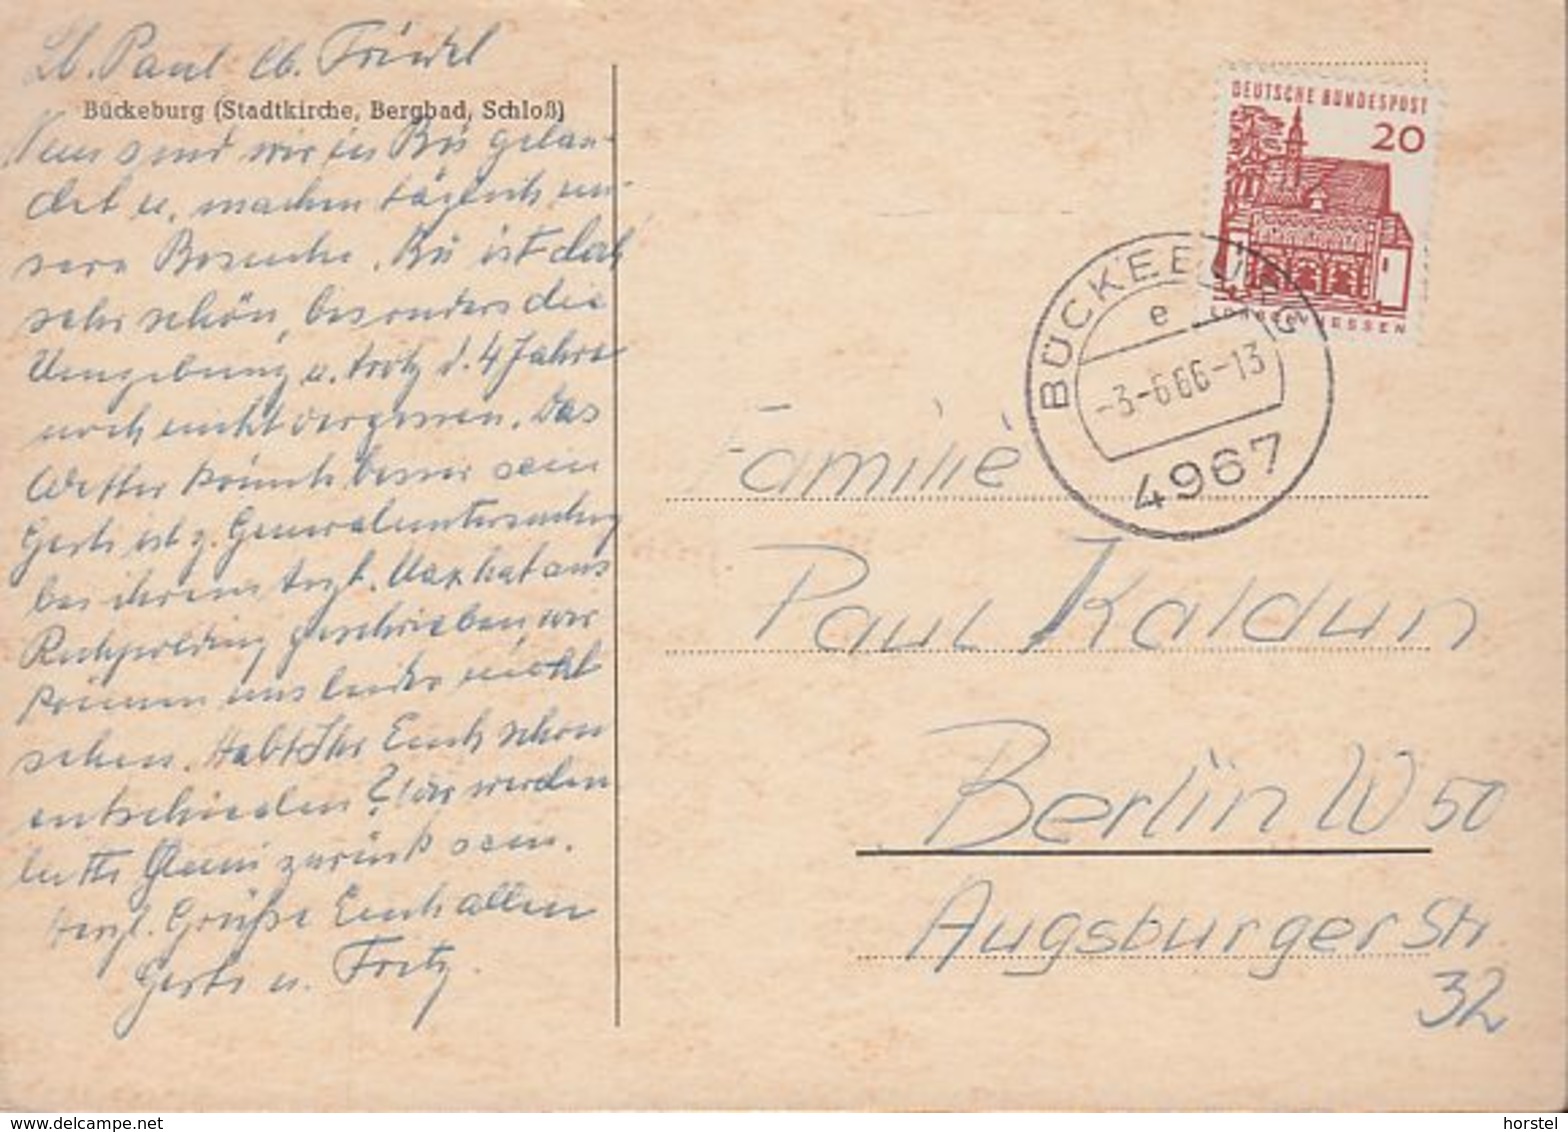 Lb. Paul lb. Friedel
Bückeburg (Stadtkirche, Bergbad, Schloß)
Nun sind wir in Bü gelan-
det u. machen täglich un-
sere Besuche. Bü ist doch
sehr schön, besonders die
Umgebung u. trotz d. 4 Jahre
noch nicht vergessen. Das
Wetter könnte besser sein
Gerti ist z. Generaluntersuchung
bei ihrem Arzt. Max hat aus
Ruhpolding geschrieben, wir
können uns leider nicht
sehen. Habt Ihr Euch schon
entschieden? Wir werden
zurück sein.
Herzl. Grüße Euch allen
Gerti u. Fritz.
DEUTSCHE BUNDESPOST
20
LORSCH HESSEN
BÜCKEBURG
e
-3.-6.66-13
4967
Familie
Paul Kaldun
Berlin W 50
Augsburger Str
32
www.delcampe.net
horstel